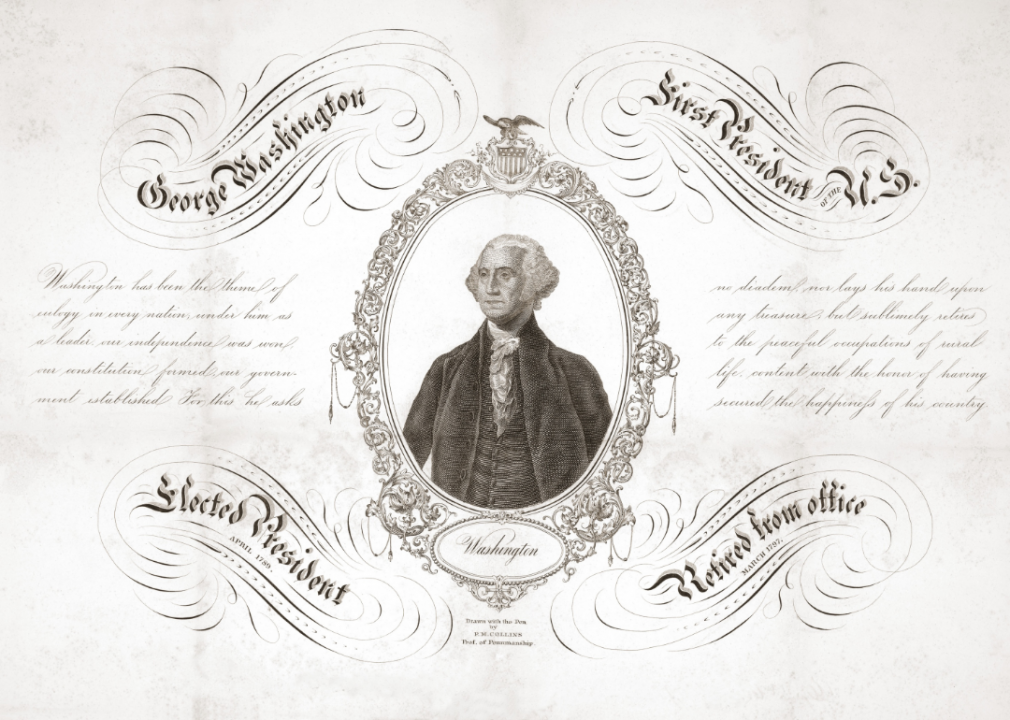 George Washington
First President OF THE U.S.
Washington has been the theme of
eulogy in every nation, under him as
a leader, our independence was won,
our constitution formed, our govern-
ment established For this he asks
no diadem, nor lays his hand upon
any treasure, but sublimely retires
to the peaceful occupations of rural
life, content with the honor of having
secured the happiness of his country.
Elected President
APRIL 1789.
Retired from office
MARCH 1797.
Washington
Drawn with the Pen
by
COLLINS
Prof. of Penmanship.